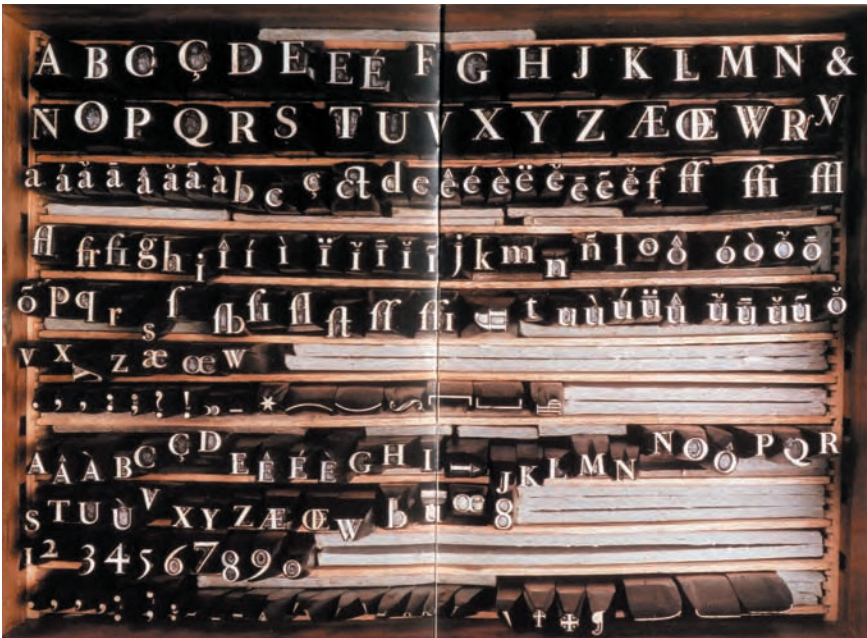 A B C Ç D E E É F G H J K L M N &
N O P Q R S T U V X Y Z Æ Œ W R V
a á ǎ ā â ǎ ã à b c ç ct d e ê é è ë ě ē ẽ ě f ff ffi ffl
fl fr fi g h i î í ì ï ǐ ī ĭ j k m n ñ l o ô ó ò ǒ ō
õ p q r s ſ ſb ſi ſl ſt ſſ ſſi t u ù ú ü û ǔ ū ŭ ũ ǒ
v x y z æ œ w
. , ’ : ; ? ! „ - *
A Â À B C Ç D E Ê É È G H I J K L M N N O Ô P Q R
S T U Ù V X Y Z Æ Œ W b u œ 8
1 2 3 4 5 6 7 8 9 0
. , ’ : ;